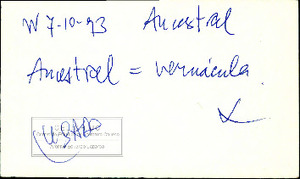 W 7-10-93 Ancestral
Ancestral = vernácula.
USADO